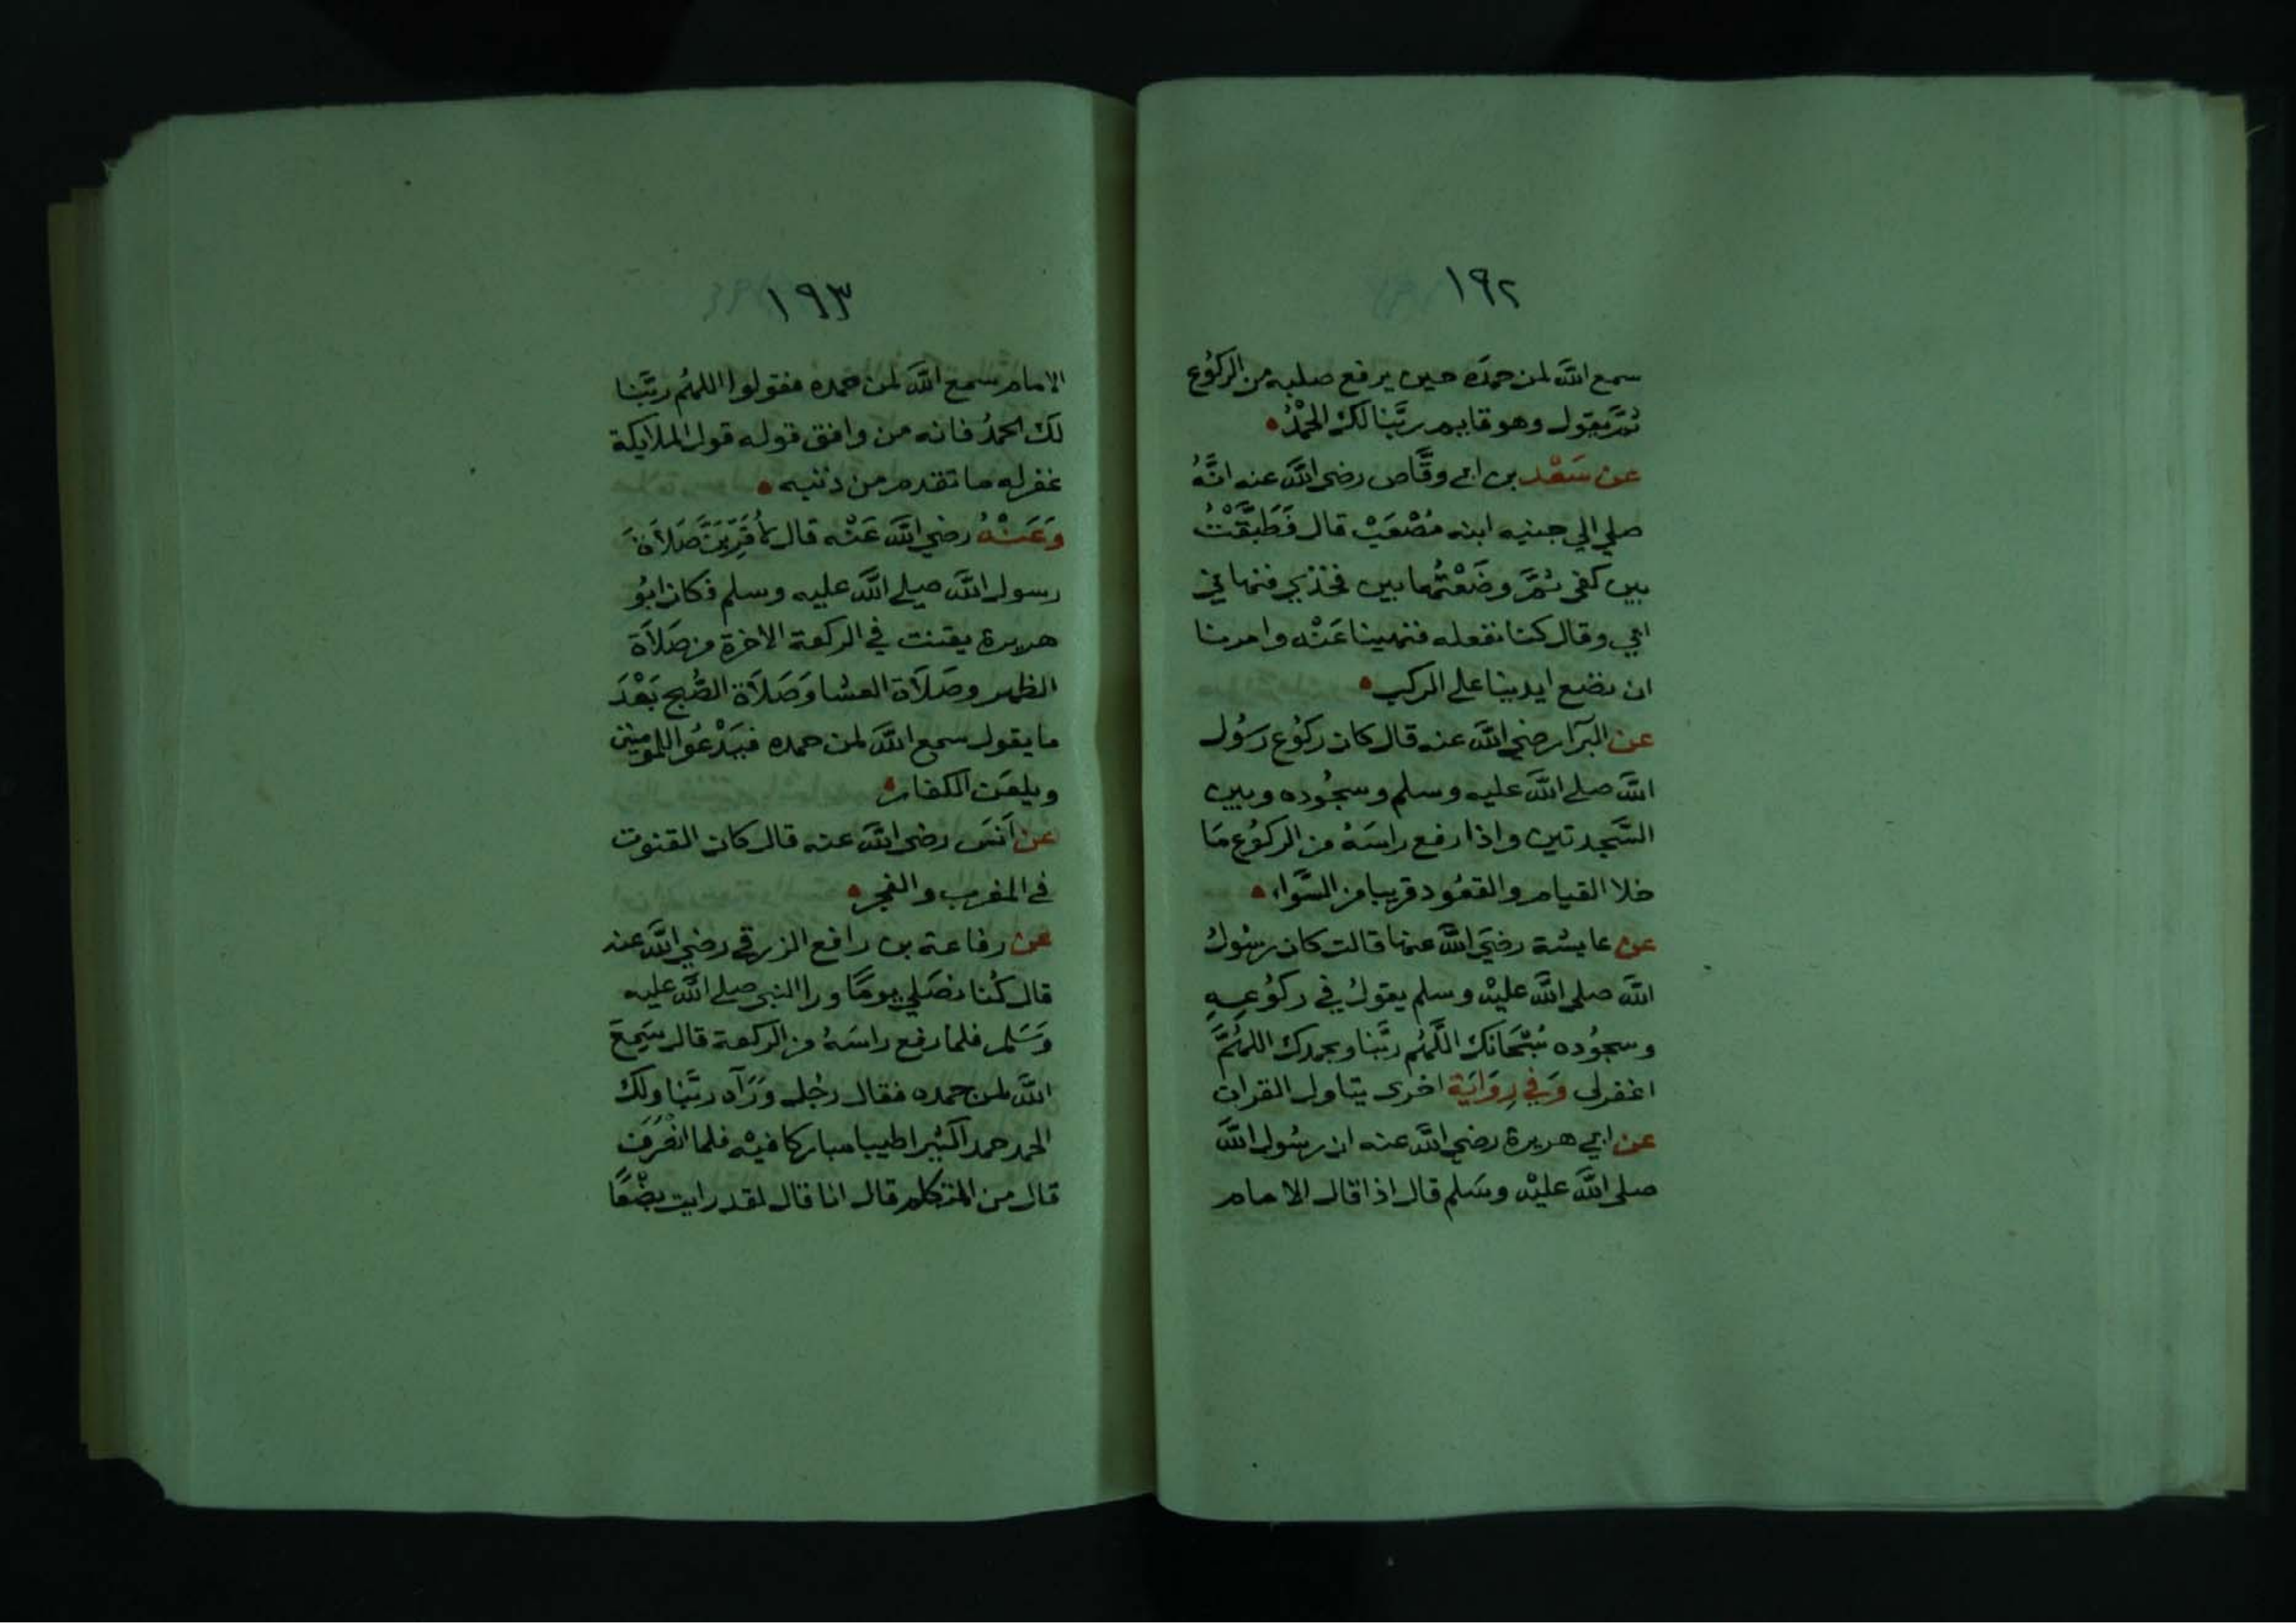 ١٩٢
سمع الله لمن حمدَه حين يرفع صلبه من الركُوع
ثمَّ يقول وهو قايم ربَّنا لك الحمْدُ
عن سَعْد بن ابي وقَّاص رضي الله عنه انَّهُ
صلي الي جنبه ابنه مُصْعَبْ قال فَطَبَّقْتُ
بين كفي ثمَّ وضَعْتُهما بين فخذي فنهاني
ابي وقال كنا نفعله فنهينا عَنْه وامرنا
ان نضع ايدينا علي الركب
عن البرَآ رضي الله عنه قال كان ركوُع رسُول
الله صلي الله عليه وسلم وسجُوده وبين
السَّجدتين واذا رفع راسَهُ من الركوُع مَا
خلا القيام والقعُود قريبا من السَّواء
عن عايشة رضيَ الله عنها قالت كان رسُولُ
الله صلى الله عليْه وسلم يقولُ في ركوُعِهِ
وسجُوده سُبْحَانك اللَّهُم ربَّنا وبحمدك اللهُمَّ
اغفرلى وَفي رِوَايَة اخرى يتاول القران
عن ابي هريرة رضي الله عنه ان رسُول الله
صلى الله عليْه وسَلم قال اذا قال الامام
١٩٣
الامام سمع الله لمن حمده فقولوا اللهُم ربَّنا
لك الحمدُ فانه من وافق قوله قول الملايكة
غفر له ما تقدم من ذنبه
وَعَنْهُ رضي الله عَنْه قال لأُقَرِّبَنَّ صَلَاةَ
رسول الله صلي الله عليه وسلم فكان ابُو
هريرة يقنت في الركعة الاخرة من صَلاَة
الظهر وصَلاَة العشا وَصَلاَة الصُّبح بَعْدَ
ما يقول سمع الله لمن حمده فيَدْعُوا للمومنين
ويلعَن الكفار
عن اَنسَ رضي الله عنه قال كان القنوت
في المغرب والفجر
عن رفاعة بن رافع الزرقي رضي الله عنه
قال كُنا نصَلي يومًا ورا النبي صلى الله عليه
وَسَلم فلما رفع راسَهُ من الركعة قال سَمِعَ
الله لمن حمده فقال رجُل وَرَآه ربَّنا ولك
الحمد حمدا كثيرا طيبا مباركا فيْه فلما انصَرَف
قال من المتكلم قال انا قال لقد رايت بضْعًا